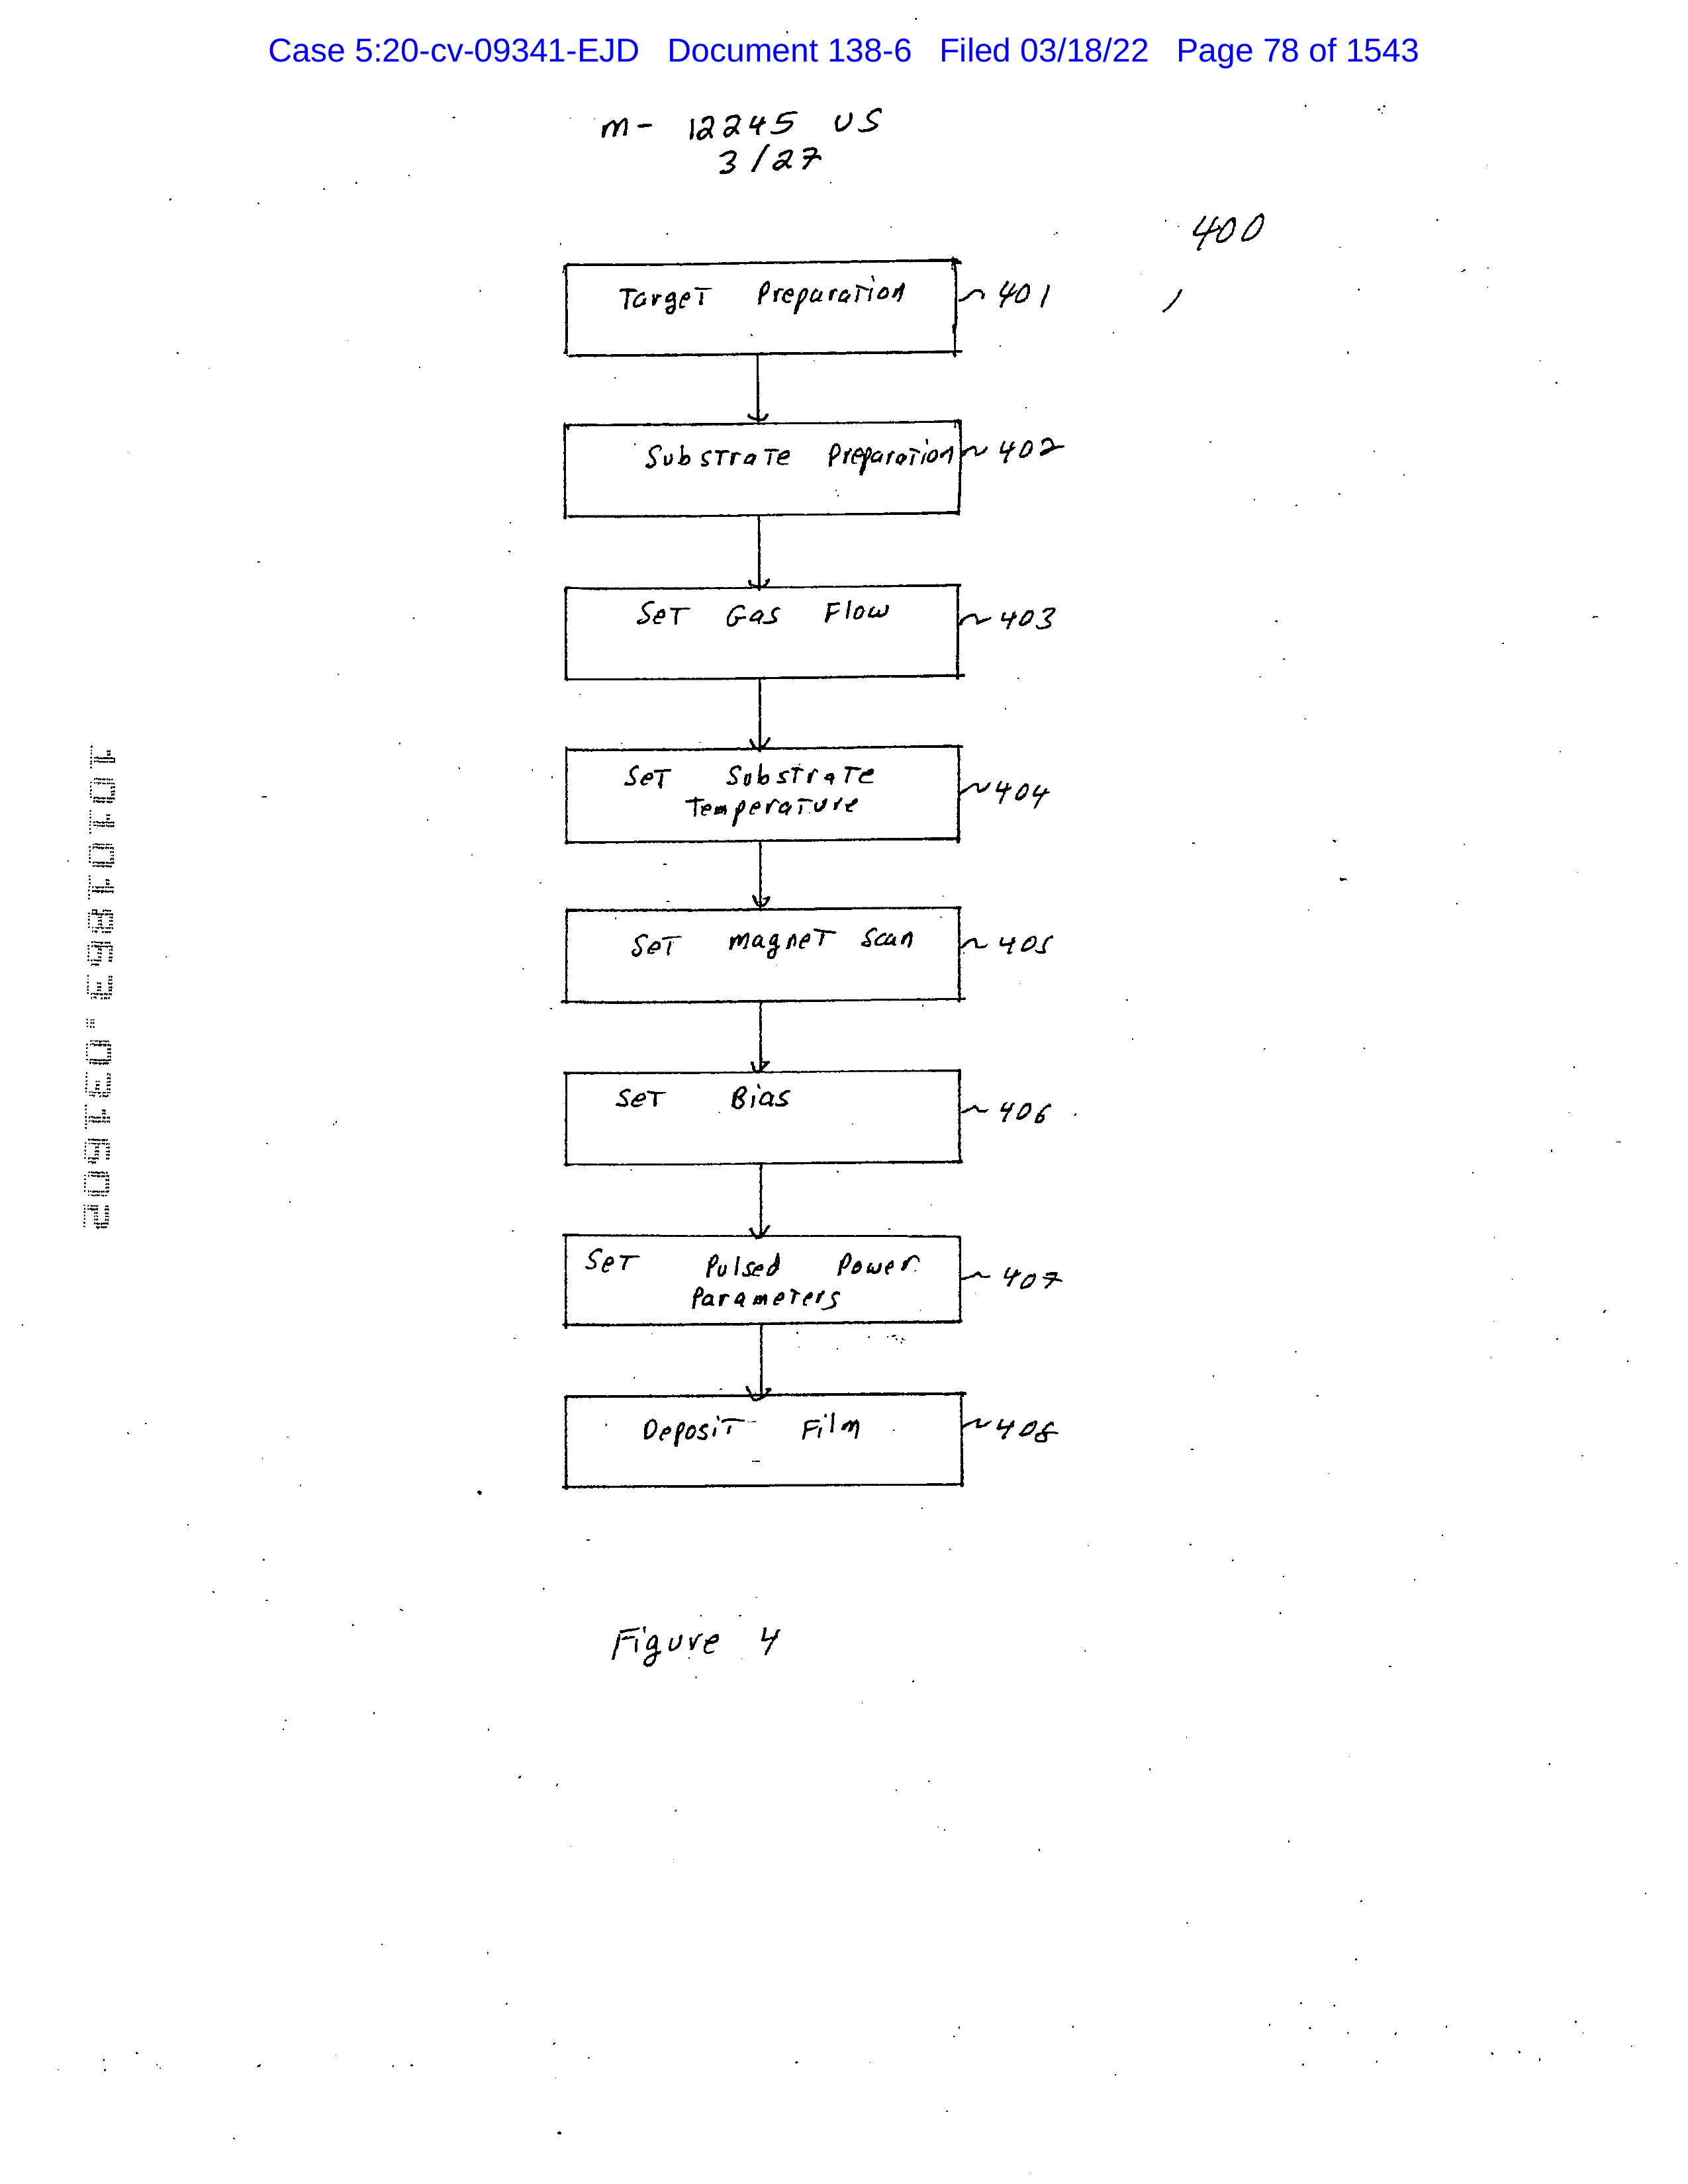 Case 5:20-cv-09341-EJD Document 138-6 Filed 03/18/22 Page 78 of 1543
M- 12245 US
3/27
400
Target Preparation 401
Substrate Preparation 402
Set Gas Flow 403
Set Substrate
Temperature 404
Set Magnet Scan 405
Set Bias 406
Set Pulsed Power
Parameters 407
Deposit Film 408
Figure 4
10101863.031602